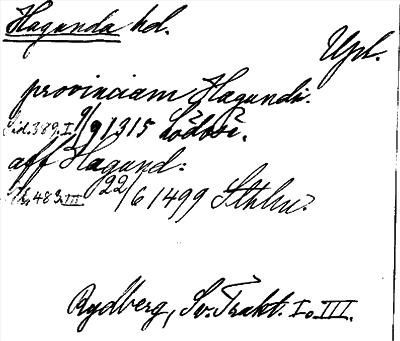 Hagunda hd.
Upl.
provinciam Hagundi.
Sid. 389. I. 9/9 1315 Lödöse.
aff Hagund:
Sid. 483. III. 22/6 1499 Sthlm.
Rydberg, Sv. Trakt. I o. III.